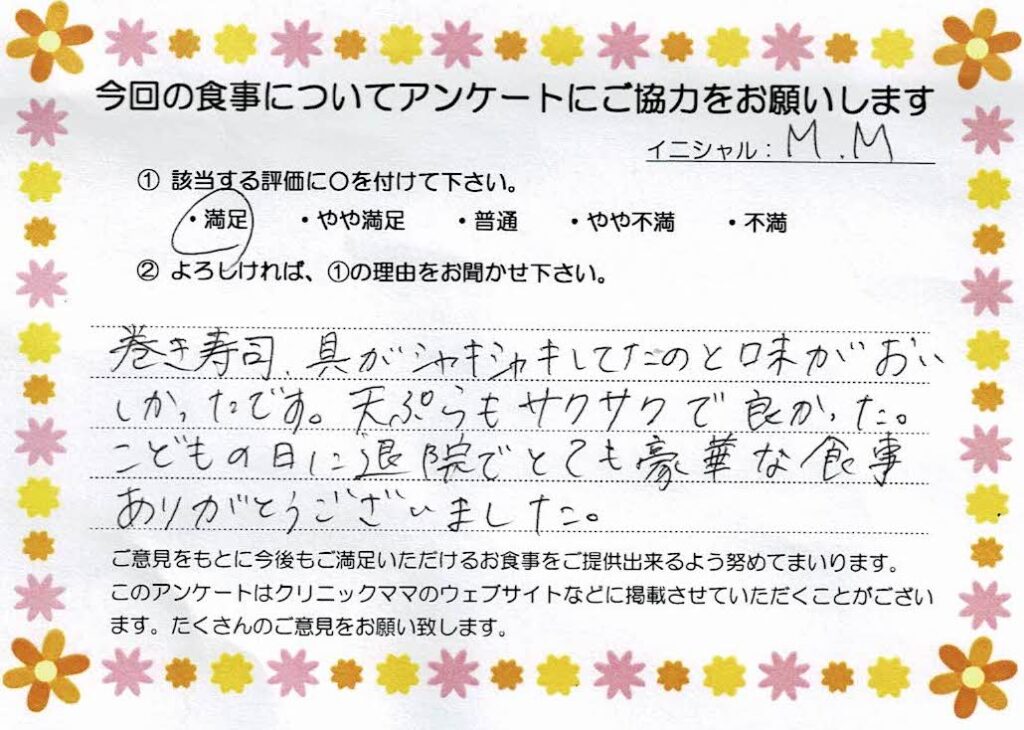 今回の食事についてアンケートにご協力をお願いします
イニシャル：M.M
① 該当する評価に○を付けて下さい。
・満足 ・やや満足 ・普通 ・やや不満 ・不満
② よろしければ、①の理由をお聞かせ下さい。
巻き寿司、具がシャキシャキしてたのと味がおい
しかったです。天ぷらもサクサクで良かった。
こどもの日に退院でとても豪華な食事
ありがとうございました。
ご意見をもとに今後もご満足いただけるお食事をご提供出来るよう努めてまいります。
このアンケートはクリニックママのウェブサイトなどに掲載させていただくことがござい
ます。たくさんのご意見をお願い致します。